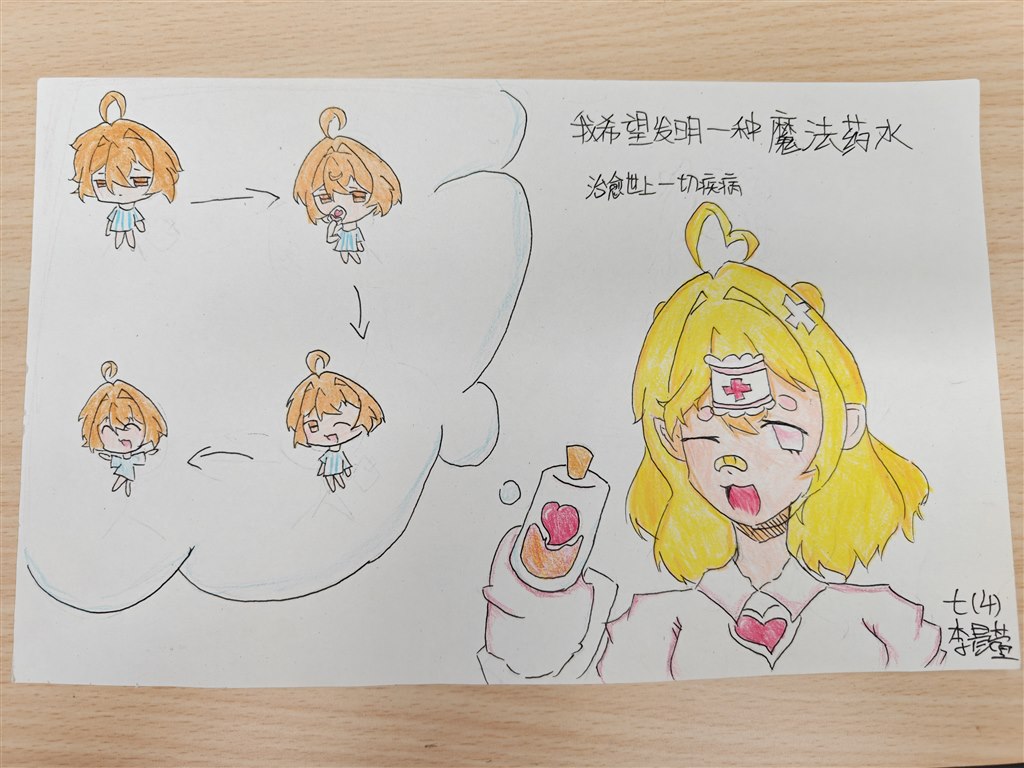 我希望发明一种魔法药水
治愈世上一切疾病
七(4)
李晨莹